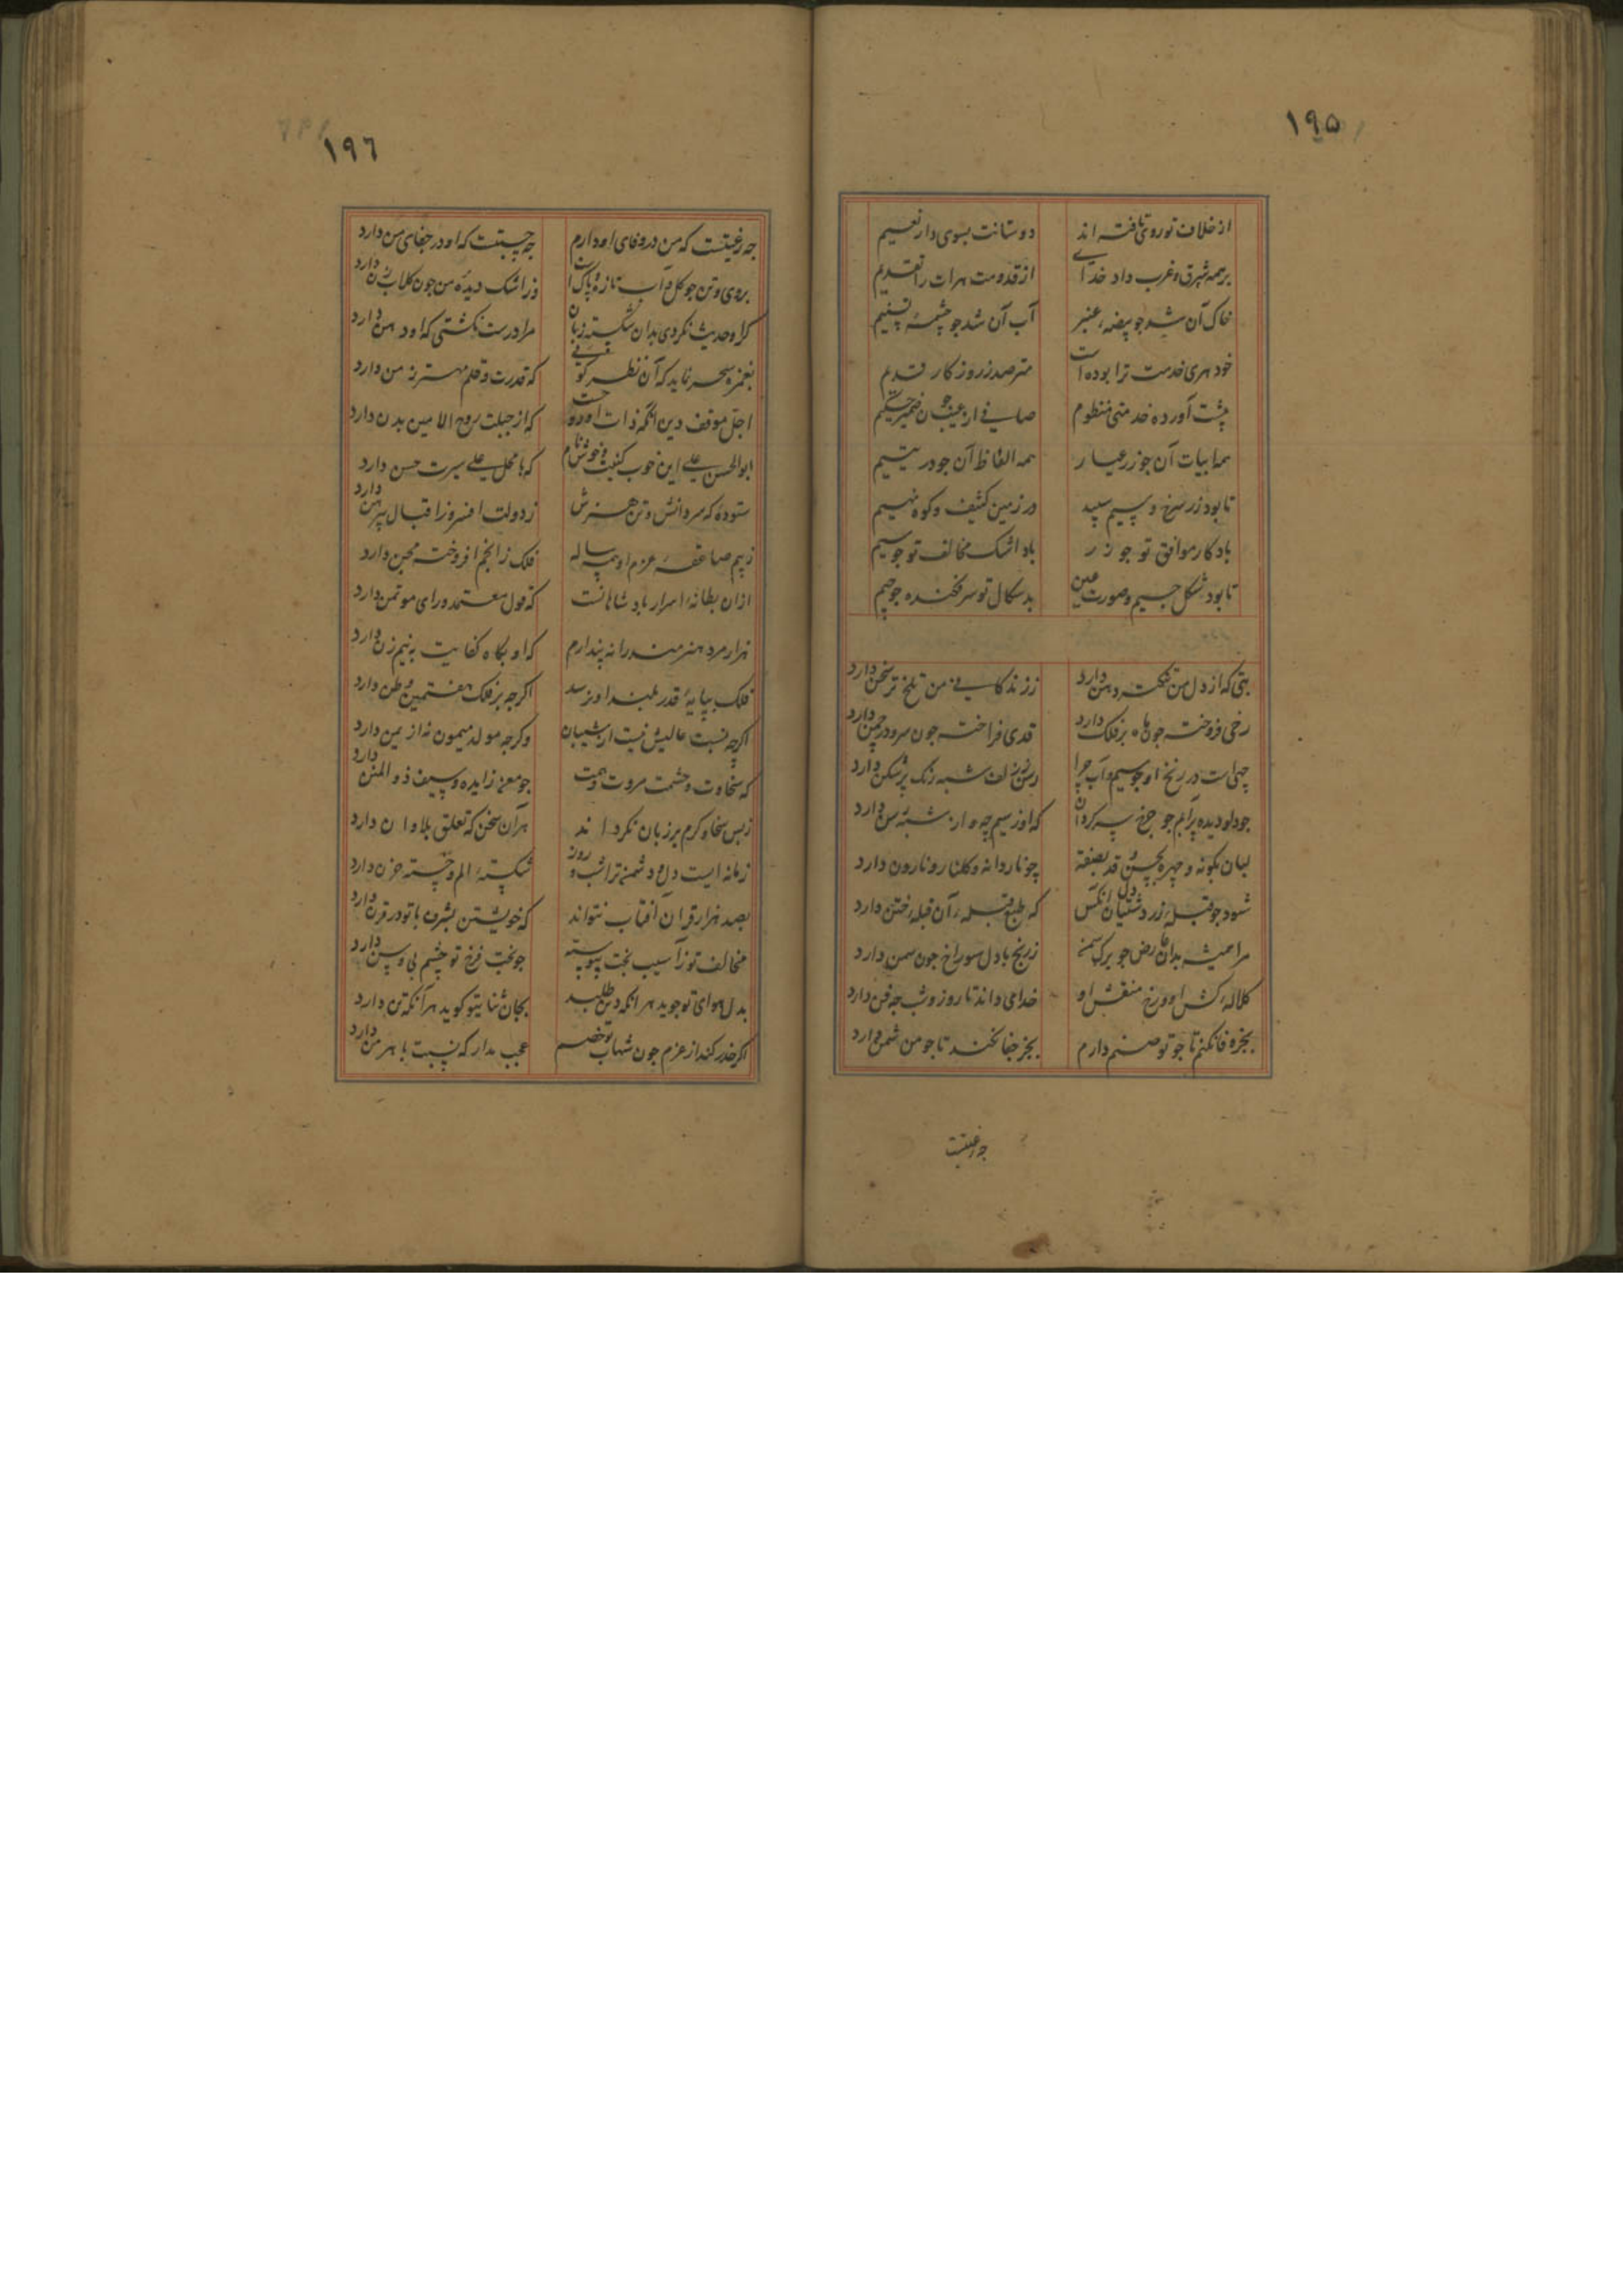 ١٩۵
از خلاف تو روی تافته اند دوستانت بسوی دار نعیم
بر همه شرق و غرب داد خدای از قدومت هرات را تقدیم
خاک آن شد جو بیضهٔ عنبر آب آن شد جو چشمهٔ تسنیم
خود هری خدمت ترا بوده است مترصد ز روزکار قدیم
پیشت آورده خدمتی منظوم صافی از عیب جون ضمیر حکیم
همه ابیات آن جو زر عیار همه الفاظ آن جو در یتیم
تا بود زر سرخ و سیم سپید در زمین کثیف و کوه
باد کار موافق تو جو زر باد اشک مخالف تو جو سیم
تا بود شکل جیم و صورت عین بد سکال تو سر فکنده جو جیم
بتی که از دل من تنکتر دهن دارد ز زندکانی من تلخ تر سخن دارد
رخی فروخته جون ماه بر فلک دارد قدی فراخته جون سرو در چمن دارد
چهی است در زنخ او جو سیم و آب جرا رسن ز زلف شبه رنک پر شکن دارد
جو دلو دیده پر آبم جو جرخ سر کردان که او ز سیم چه و از شبه رسن دارد
لبان بکونه و چهره بحسن و قد بصفة چو ناردانه و کلنار و نارون دارد
شود جو قبلهٔ زردشتیان دل آنکس که طبع قبلهٔ آن قبلهٔ ختن دارد
مرا همیشه بدان عارض جو برک سمن ز رنج با دل سوراخ جون سمن دارد
کلالهٔ کش او و رخ منقش او خدای داند تا روز و شب جه فن دارد
بجز وفا نکنم تا جو تو صنم دارم بجز جفا نکند تا جو من شمن دارد
جه رغبتست
١٩٦
جه رغبتست که من در وفای او دارم جه حبتست که او در جفای من دارد
بروی و تن جو کل و آب تازه و پاک است وز اشک دیدهٔ من جون کلاب زن دارد
کر او حدیث نکردی بدان شکسته زبان مرا درست نکشتی که او دهن دارد
بغمزه سحر نماید که آن نظر کوئی که قدرت و قلم مهتر زمن دارد
اجل موقف دین آنکه ذات او دوحت که از جبلت روح الامین بدن دارد
ابو الحسن علی این خوب کنیت و خوش نام که با محل علی سیرت حسن دارد
ستوده که سر دانش و تن هنرش ز دولت افسر و ز اقبال پیرهن دارد
ز بیم صاعقهٔ عزم او همه ساله فلک ز انجم افروخته مجن دارد
از آن بطانهٔ اسرار پادشاهانست که قول معتمد و رای موتمن دارد
هزار مرد هنرمند را نه پندارم که او بکاه کفایت به نیم زن دارد
فلک بپایهٔ قدر بلند او نرسد اکرجه بر فلک هفتمین وطن دارد
اکرچه نسبت عالیش نیست از شیبان وکرجه مولد میمون نه از یمن دارد
که سخاوت و حشمت مروت و همت جو معن زایده و سیف ذو المنن دارد
ز بس سخا و کرم بر زبان نکرد اند هر آن سخن که تعلق بلا و لن دارد
زمانه ایست دل دشمن ترا شب و روز شکستهٔ الم و خستهٔ حزن دارد
بصد هزار قران آفتاب نتواند که خویشتن بشرف با تو در قرن دارد
مخالف تو ز آسیب بخت پیوسته جو بخت فرخ تو چشم بی وسن دارد
بدل هوای تو جوید هر آنکه دین طلبد بجان ثنای تو کوید هر آنکه تن دارد
اکر حذر کند از عزم جون شهاب تو خصم عجب مدار که نسبت باهرمن دارد